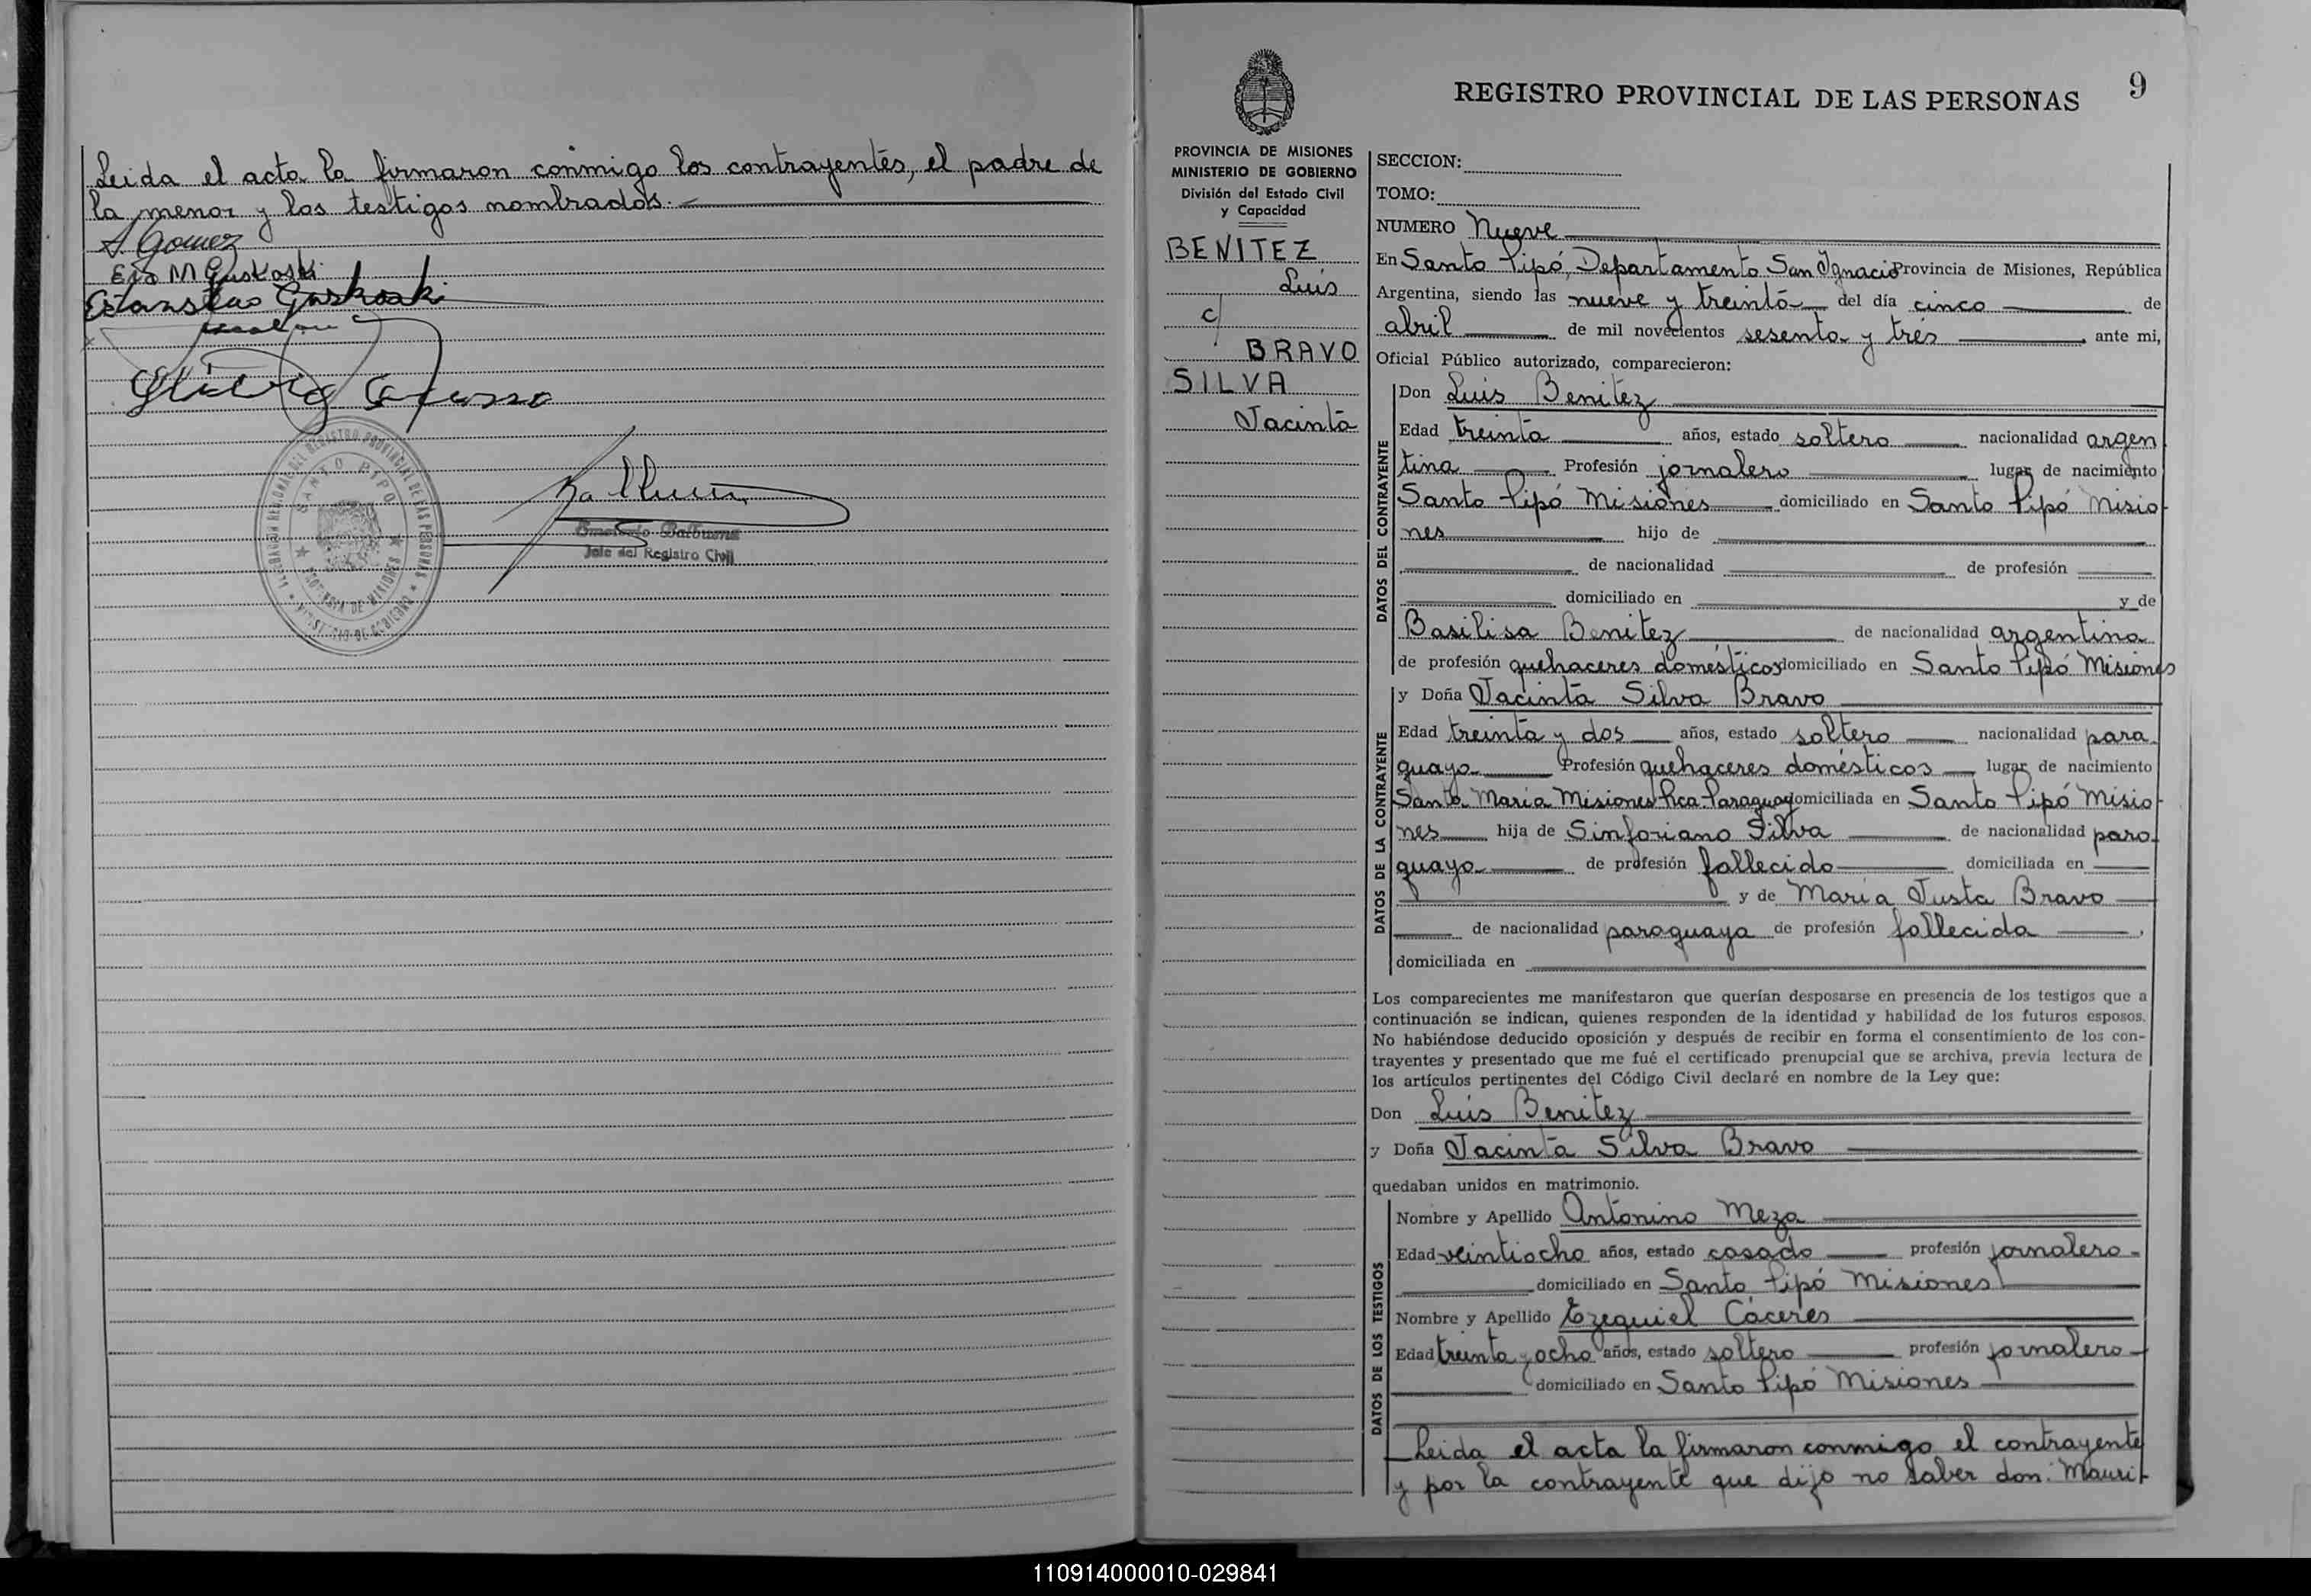 Leida el acta la firmaron conmigo los contrayentes, el padre de
la menor y los testigos nombrados.
A. Gomez
Estanislao Guskoski
Balbuena
Jefe del Registro Civil
SANTO PIPO
REGISTRO PROVINCIAL DE LAS PERSONAS
9
PROVINCIA DE MISIONES
MINISTERIO DE GOBIERNO
División del Estado Civil
y Capacidad
BENITEZ
Luis
c/
BRAVO
SILVA
Jacinta
SECCION:
TOMO:
NUMERO Nueve
En Santo Pipó, Departamento San Ignacio Provincia de Misiones, República
Argentina, siendo las nueve y treinta del día cinco de
abril de mil novecientos sesenta y tres ante mi,
Oficial Público autorizado, comparecieron:
DATOS DEL CONTRAYENTE
Don Luis Benitez
Edad treinta años, estado soltero nacionalidad argen
tina Profesión jornalero lugar de nacimiento
Santo Pipó Misiones domiciliado en Santo Pipó Misio
nes hijo de
de nacionalidad de profesión
domiciliado en y de
Basilisa Benitez de nacionalidad argentina
de profesión quehaceres domésticos domiciliado en Santo Pipó Misiones
DATOS DE LA CONTRAYENTE
y Doña Jacinta Silva Bravo
Edad treinta y dos años, estado soltera nacionalidad para
guaya Profesión quehaceres domésticos lugar de nacimiento
Santa María Misiones Rca. Paraguay domiciliada en Santo Pipó Misio
nes hija de Sinforiano Silva de nacionalidad para
guaya de profesión fallecido domiciliada en
y de María Justa Bravo
de nacionalidad paraguaya de profesión fallecida
domiciliada en
Los comparecientes me manifestaron que querían desposarse en presencia de los testigos que a
continuación se indican, quienes responden de la identidad y habilidad de los futuros esposos.
No habiéndose deducido oposición y después de recibir en forma el consentimiento de los con-
trayentes y presentado que me fué el certificado prenupcial que se archiva, previa lectura de
los artículos pertinentes del Código Civil declaré en nombre de la Ley que:
Don Luis Benitez
y Doña Jacinta Silva Bravo
quedaban unidos en matrimonio.
DATOS DE LOS TESTIGOS
Nombre y Apellido Antonino Meza
Edad veintiocho años, estado casado profesión jornalero
domiciliado en Santo Pipó Misiones
Nombre y Apellido Ezequiel Cáceres
Edad treinta y ocho años, estado soltero profesión jornalero
domiciliado en Santo Pipó Misiones
Leida el acta la firmaron conmigo el contrayente
y por la contrayente que dijo no saber don: Mauri-
110914000010-029841